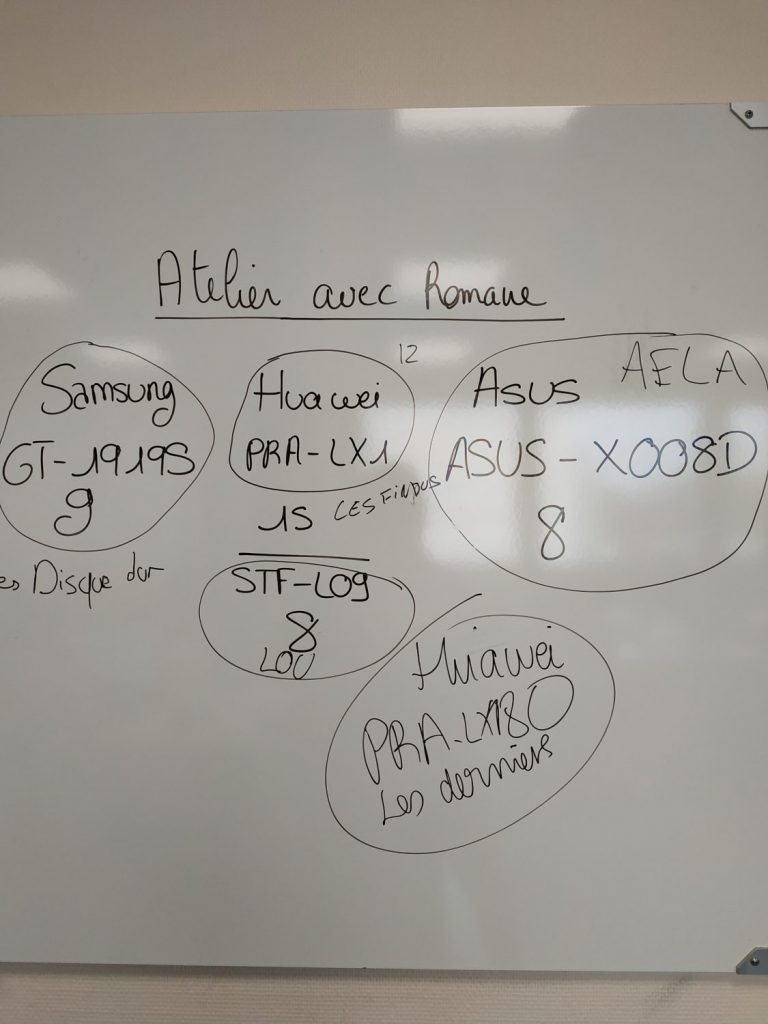 Atelier avec Romane
Samsung
GT-19195
9
es Disque dor
12
Huawei
PRA-LX1
15
LES FINDUS
STF-L09
8
LOU
Asus
AELA
ASUS-X008D
8
Huiawei
PRA-LX180
Les derniers